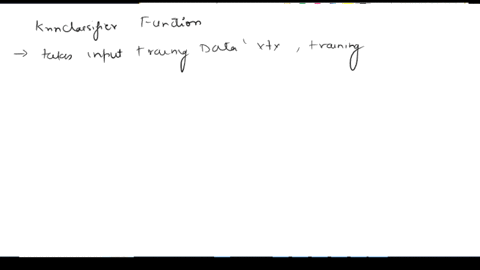 Knnclassifier Function
→ takes input traing Data' xtx , training